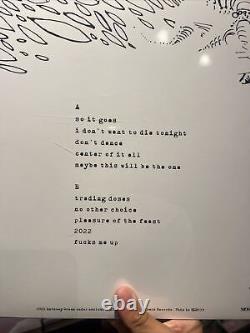 A
so it goes
i don't want to die tonight
don't dance
center of it all
maybe this will be the one
B
trading doses
no other choice
pleasure of the feast
2022
fucks me up